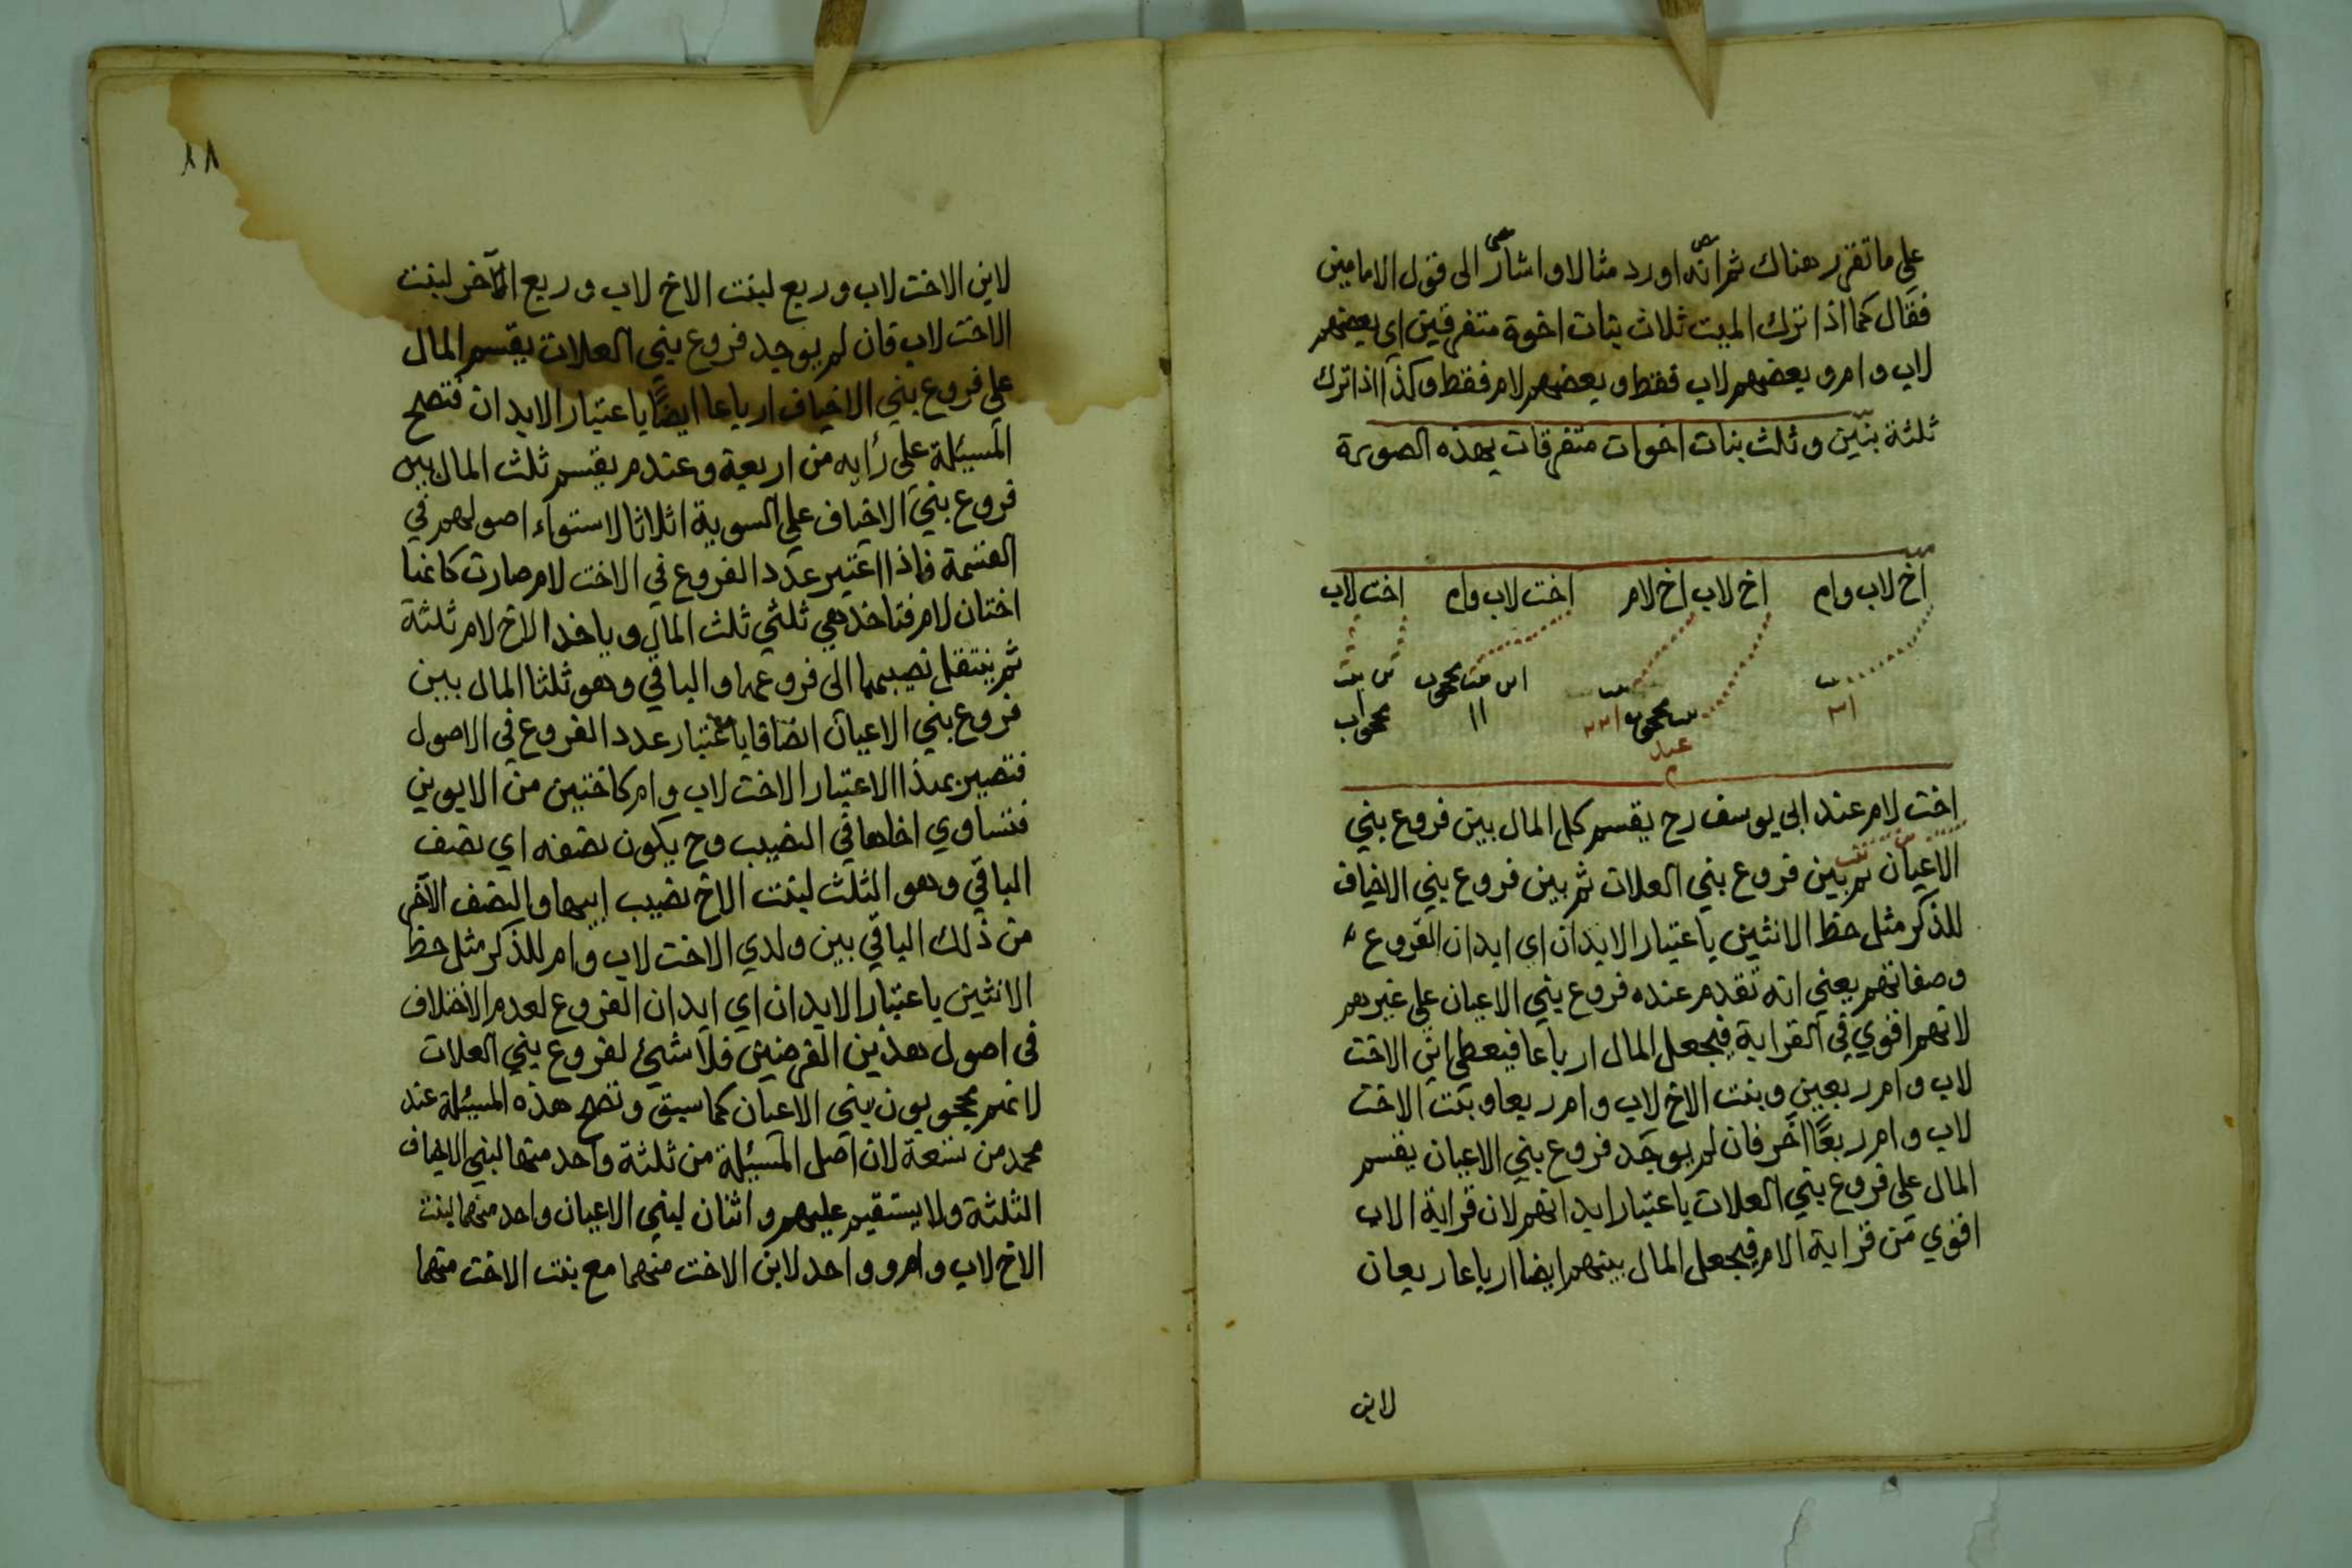 على ما تقرر هناك ثم انه اورد مثالا واشار الى قول الامامين
فقال كما اذا ترك الميت ثلاث بنات اخوة متفرقين اي بعضهم
لاب وام وبعضهم لاب فقط وبعضهم لام فقط وكذا اذا ترك
ثلثة بنين وثلث بنات اخوات متفرقات بهذه الصورة
اخ لاب وام اخ لاب اخ لام اخت لاب وام اخت لاب
بنت بنت ابن بنت محجوب ابن بنت
٣١ بنت محجوب ١١ محجواب
اخت لام عند ابي يوسف رح يقسم كل المال بين فروع بني
الاعيان ثم بين فروع بني العلات ثم بين فروع بني الاخياف
للذكر مثل حظ الانثيين باعتبار الابدان اي ابدان الفروع
وصفاتهم يعني انه تقدم عنده فروع بني الاعيان على غيرهم
لانهم اقوي في القرابة فيجعل المال ارباعا فيعطى ابن الاخت
لاب وام ربعين وبنت الاخ لاب وام ربعا وبنت الاخت
لاب وام ربعًا اخر فان لم يوجد فروع بني الاعيان يقسم
المال على فروع بني العلات باعتبار ابدانهم لان قرابة الاب
اقوي من قرابة الام فيجعل المال بينهم ايضا ارباعا ربعان
لابن
٨٨
لابن الاخت لاب وربع لبنت الاخ لاب وربع الآخر لبنت
الاخت لاب فان لم يوجد فروع بني العلات يقسم المال
على فروع بني الاخياف ارباعا ايضًا باعتبار الابدان فتصح
المسئلة على رايه من اربعة وعندم يقسم ثلث المال بين
فروع بني الاخياف على السوية اثلاثا لاستواء اصولهم في
القسمة فاذا اعتبر عدد الفروع في الاخت لام صارت كانها
اختان لام فتاخذ هي ثلثي ثلث المال وياخذ الاخ لام ثلثة
ثم ينتقل نصيبهما الى فروعهما والباقي وهو ثلثا المال بين
فروع بني الاعيان انصافا باعتبار عدد الفروع في الاصول
فتصير بهذا الاعتبار الاخت لاب وام كاختين من الابوين
فتساوي اخاها في النصيب وح يكون نصفه اي نصف
الباقي وهو الثلث لبنت الاخ نصيب ابيها والنصف الآخر
من ذلك الباقي بين ولدي الاخت لاب وام للذكر مثل حظ
الانثيين باعتبار الابدان اي ابدان الفروع لعدم الاختلاف
في اصول هذين الفرضين فلا شيئ لفروع بني العلات
لانهم محجوبون ببني الاعيان كما سبق وتصح هذه المسئلة عند
محمد من تسعة لان اصل المسئلة من ثلثة واحد منها لبني الاخياف
الثلثة ولا يستقيم عليهم واثنان لبني الاعيان واحد منهما لبنت
الاخ لاب وام وواحد لابن الاخت منهما مع بنت الاخت منهما